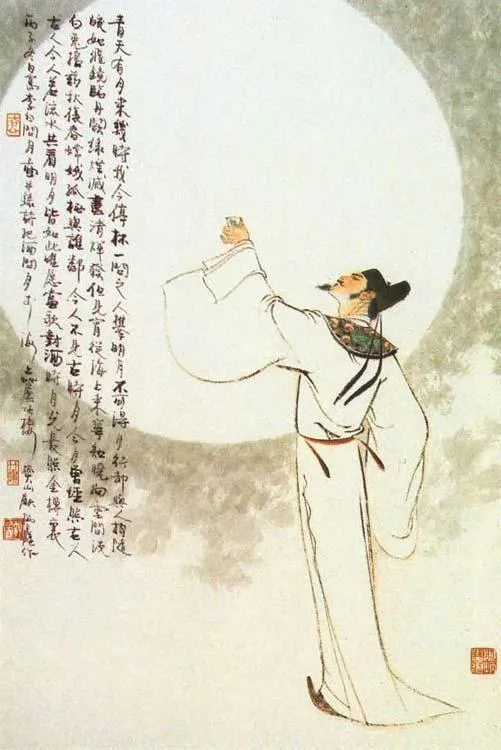 青天有月来幾時我今停杯一問之人攀明月不可得月行卻與人相隨
皎如飛鏡臨丹闕綠煙滅盡清輝發但見宵從海上來寧知曉向雲間沒
白兔搗藥秋復春嫦娥孤栖與誰鄰今人不見古時月今月曾經照古人
古人今人若流水共看明月皆如此唯願當歌對酒時月光長照金樽裏
丙子冬日寫李白問月 并錄詩把酒問月於海上 黃山 作